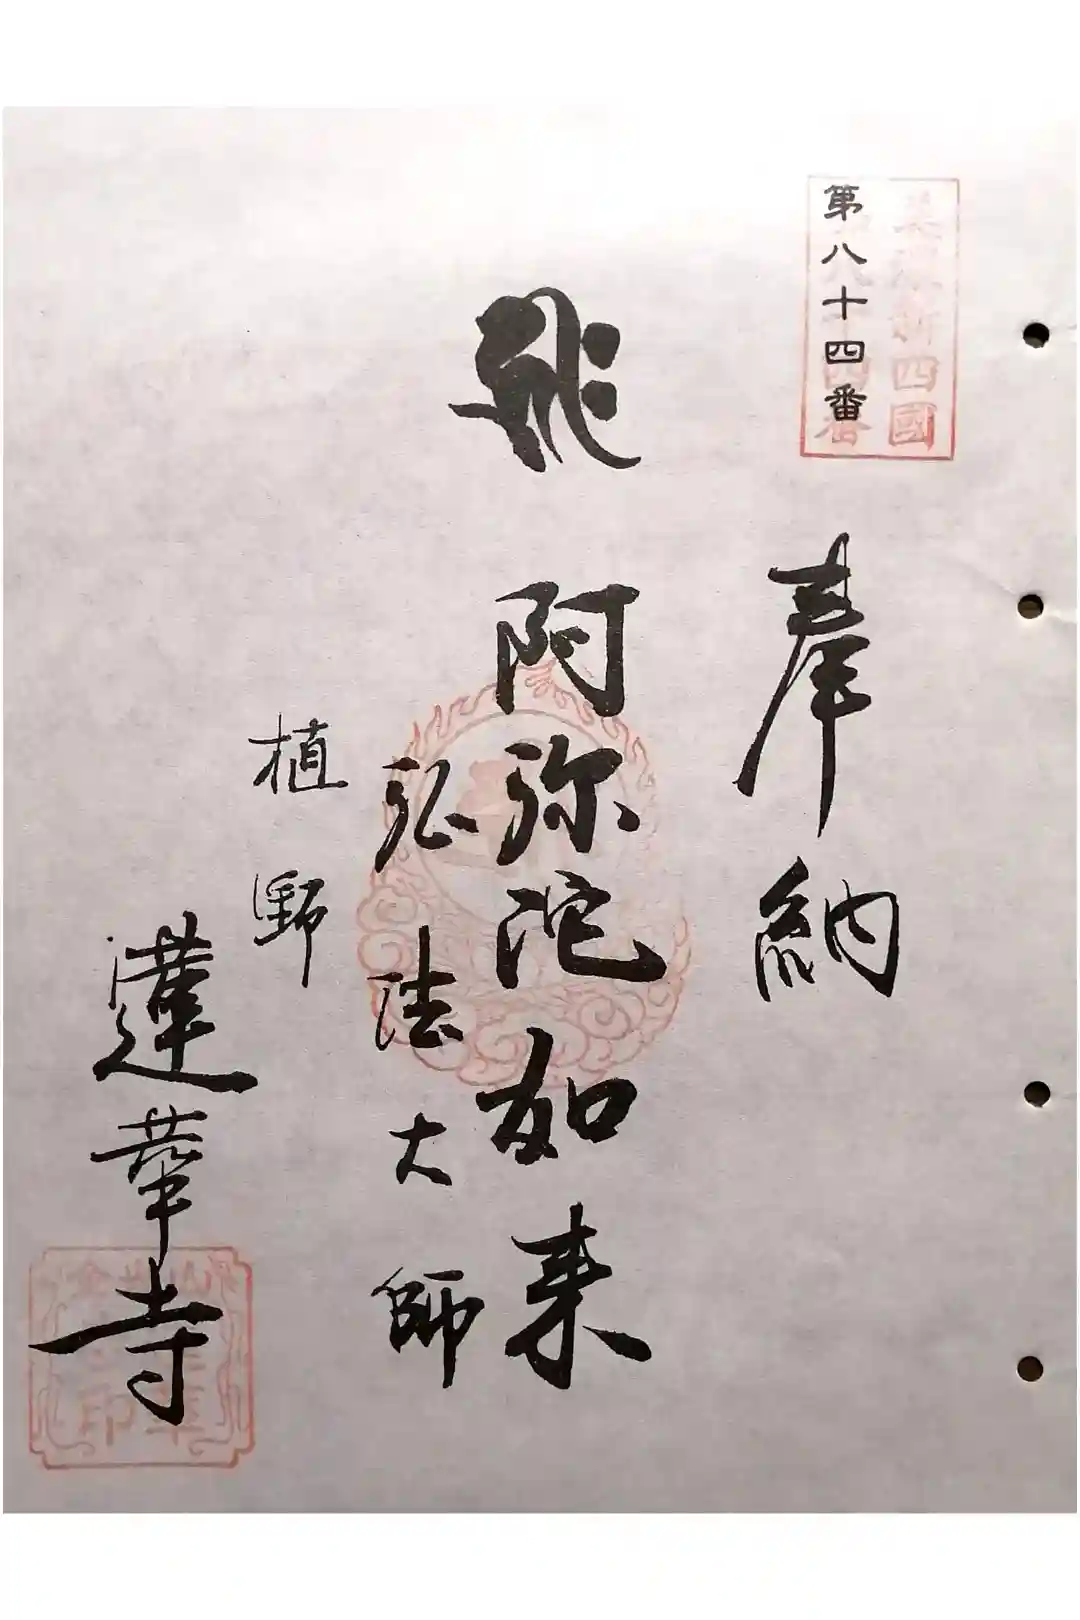 美濃新四國
第八十四番
奉納
𑖮𑖿𑖨𑖱𑖾
阿弥陀如来
弘法大師
植野
蓮華寺